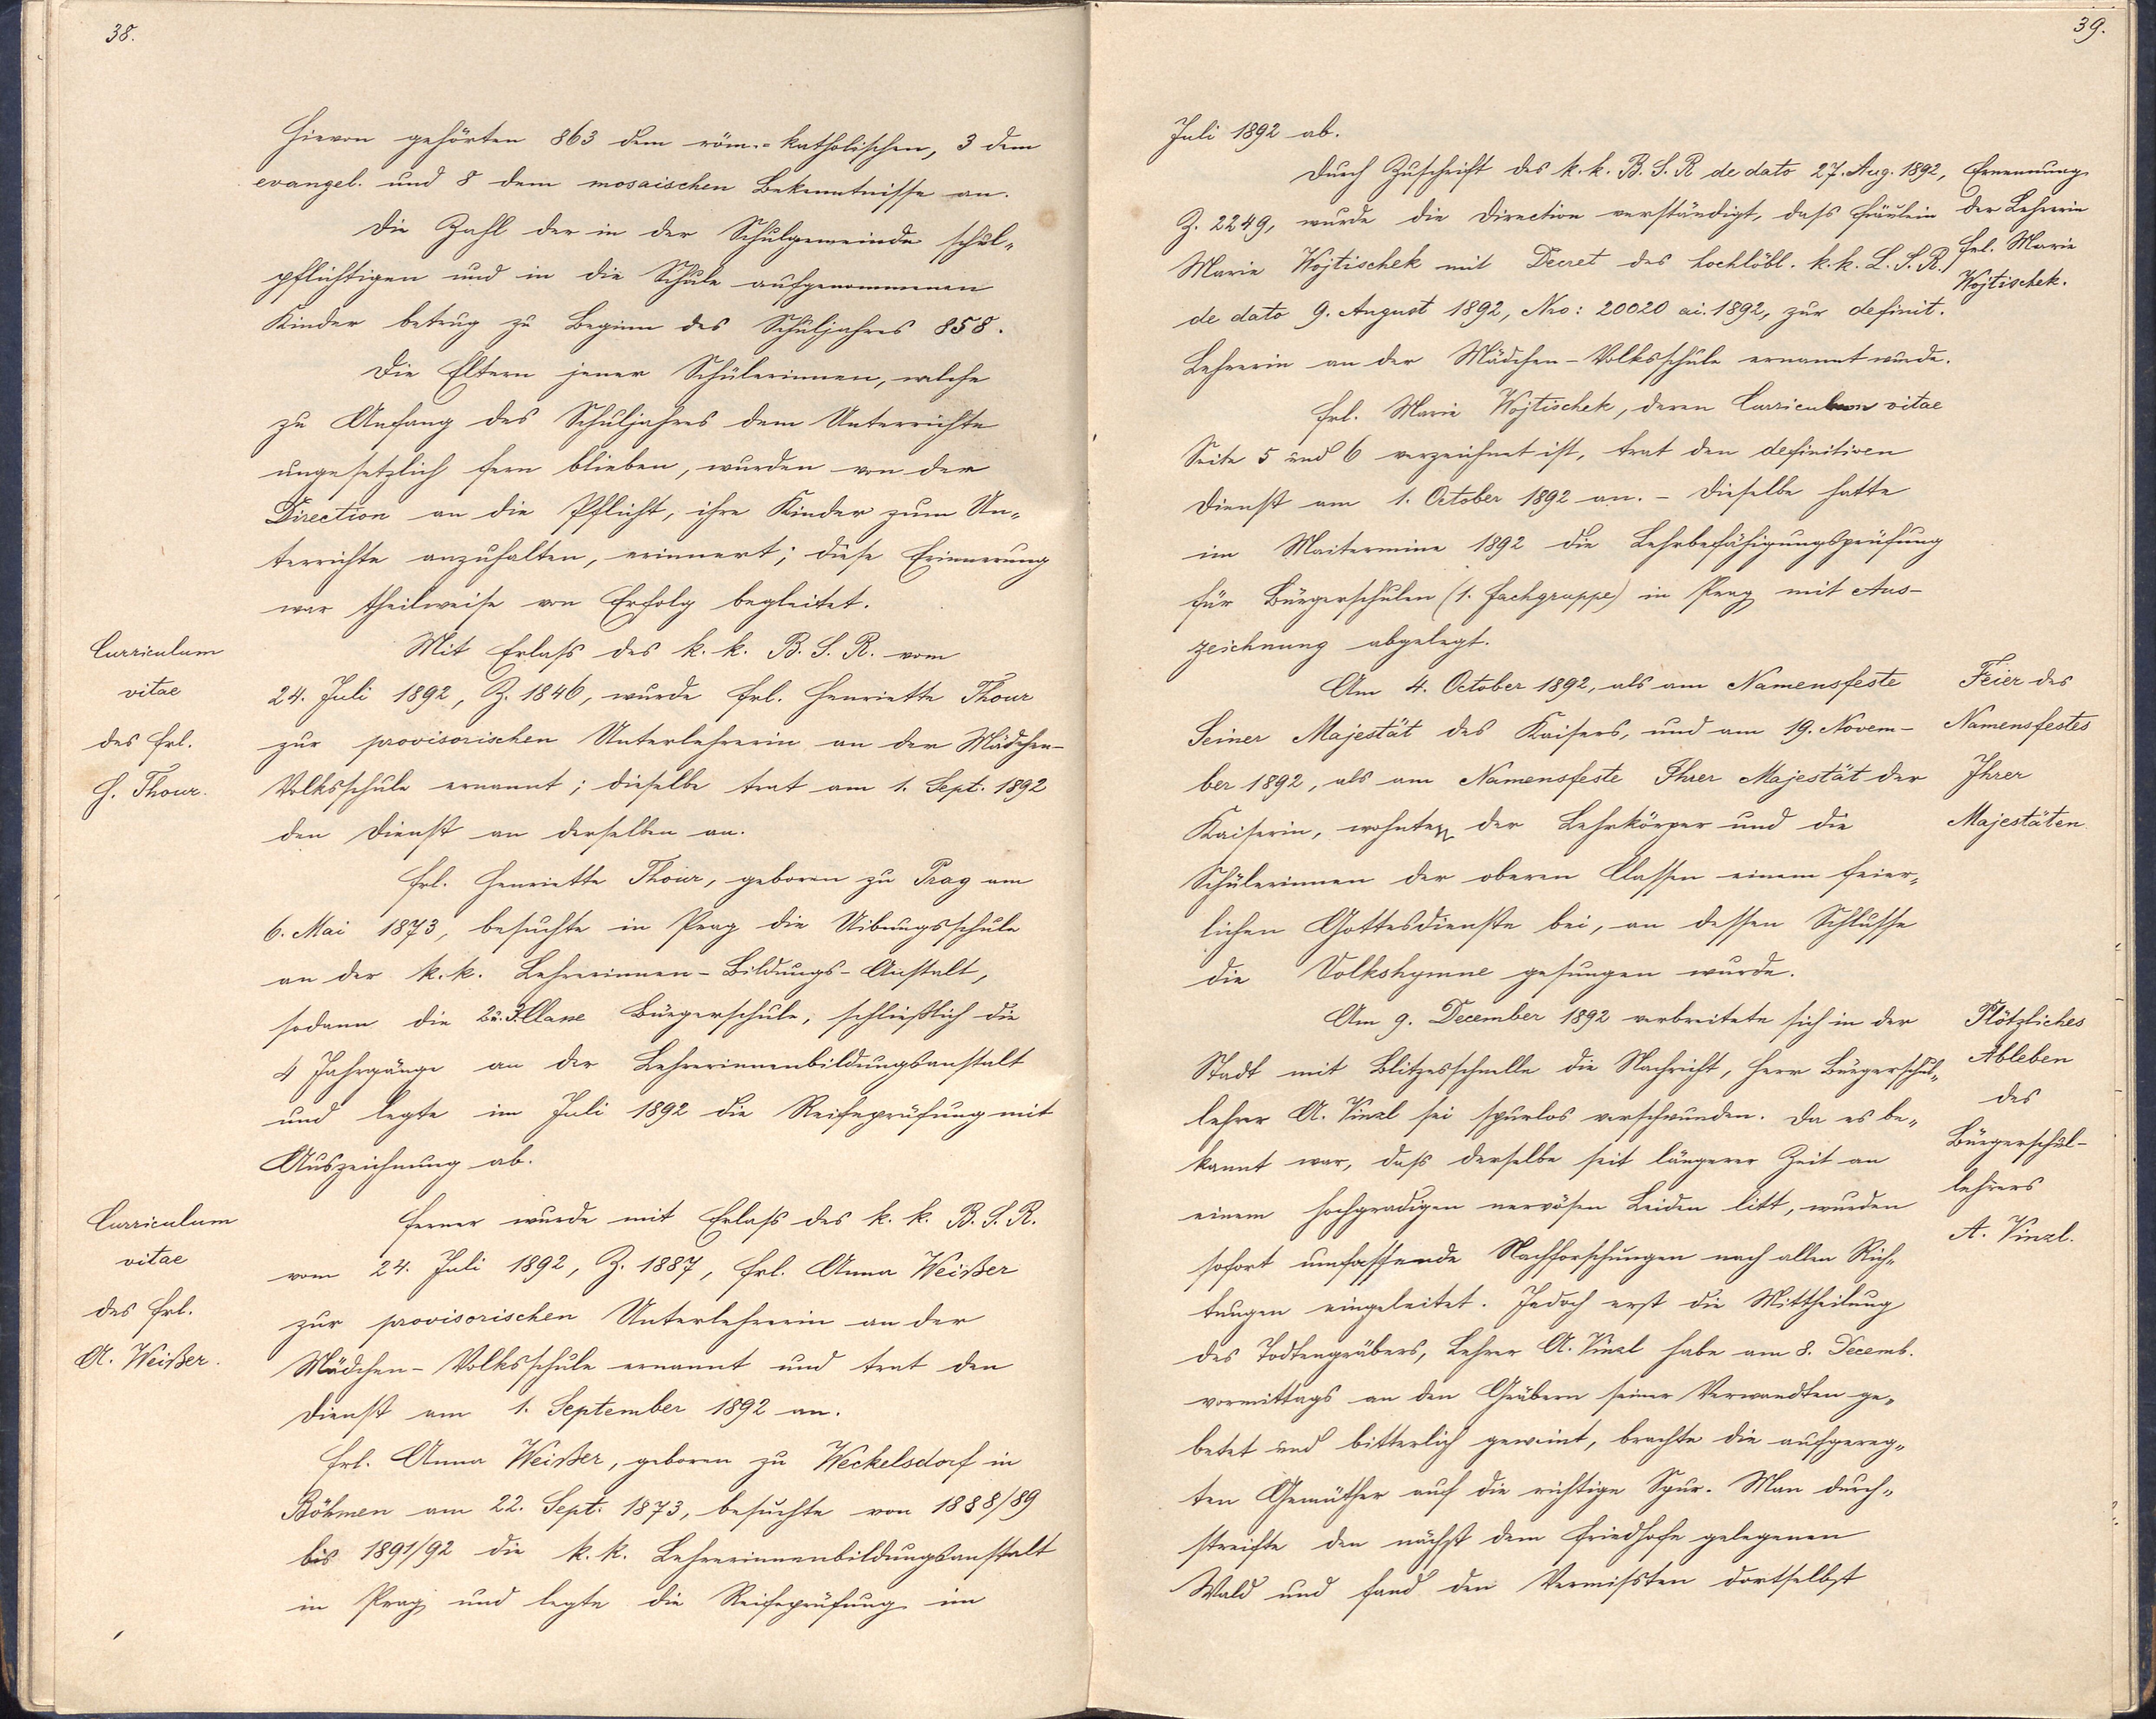 38.
Hievon gehörten 863 dem röm.-katholischen, 3 dem
evangel. und 8 dem mosaischen Bekenntnisse an.
Die Zahl der in der Schulgemeinde schul-
pflichtigen und in die Schule aufgenommenen
Kinder betrug zu Beginn des Schuljahres 858.
Die Eltern jener Schülerinnen, welche
zu Anfang des Schuljahres dem Unterrichte
ungesetzlich fern blieben, wurden von der
Direction an die Pflicht, ihre Kinder zum Un-
terrichte anzuhalten, erinnert; diese Erinnerung
war theilweise von Erfolg begleitet.
Curriculum
vitae
des Frl.
H. Thour.
Mit Erlaß des k. k. B. S. R. vom
24. Juli 1892, Z. 1846, wurde Frl. Henriette Thour
zur provisorischen Unterlehrerin an der Mädchen-
Volksschule ernannt; dieselbe trat am 1. Sept. 1892
den Dienst an derselben an.
Frl. Henriette Thour, geboren zu Prag am
6. Mai 1873, besuchte in Prag die Uibungsschule
an der k. k. Lehrerinnen-Bildungs-Anstalt,
sodann die 2. u. 3. Classe Bürgerschule, schließlich die
4 Jahrgänge an der Lehrerinnenbildungsanstalt
und legte im Juli 1892 die Reifeprüfung mit
Auszeichnung ab.
Curriculum
vitae
des Frl.
A. Weißer.
Ferner wurde mit Erlaß des k. k. B. S. R.
vom 24. Juli 1892, Z. 1887, Frl. Anna Weißer
zur provisorischen Unterlehrerin an der
Mädchen-Volksschule ernannt und trat den
Dienst am 1. September 1892 an.
Frl. Anna Weißer, geboren zu Weckelsdorf in
Böhmen am 22. Sept. 1873, besuchte von 1888/89
bis 1891/92 die k. k. Lehrerinnenbildungsanstalt
in Prag und legte die Reifeprüfung im
39.
Juli 1892 ab.
Durch Zuschrift des k. k. B. S. R de dato 27. Aug. 1892,
Z. 2249, wurde die Direction verständigt, daß Fräulein
Marie Wojtischek mit Decret des hochlöbl. k. k. L. S. R.
de dato 9. August 1892, Nro: 20020 ai. 1892, zur definit.
Lehrerin an der Mädchen-Volksschule ernannt wurde.
Ernennung
der Lehrerin
Frl. Marie
Wojtischek.
Frl. Marie Wojtischek, deren Curriculum vitae
Seite 5 und 6 verzeichnet ist, trat den definitiven
Dienst am 1. October 1892 an. - Dieselbe hatte
im Maitermine 1892 die Lehrbefähigungsprüfung
für Bürgerschulen (1. Fachgruppe) in Prag mit Aus-
zeichnung abgelegt.
Am 4. October 1892, als am Namensfeste
Seiner Majestät des Kaisers, und am 19. Novem-
ber 1892, als am Namensfeste Ihrer Majestät der
Kaiserin, wohnten der Lehrkörper und die
Schülerinnen der oberen Classen einem feier-
lichen Gottesdienste bei, an dessen Schlusse
die Volkshymne gesungen wurde.
Feier des
Namensfestes
Ihrer
Majestäten
Am 9. December 1892 verbreitete sich in der
Stadt mit Blitzesschnelle die Nachricht, Herr Bürgerschul-
lehrer A. Vinzl sei spurlos verschwunden. Da es be-
kannt war, daß derselbe seit längerer Zeit an
einem hochgradigen nervösen Leiden litt, wurden
sofort umfassende Nachforschungen nach allen Rich-
tungen eingeleitet. Jedoch erst die Mittheilung
des Todtengräbers, Lehrer A. Vinzl habe am 8. Decemb.
vormittags an den Gräbern seiner Verwandten ge-
betet und bitterlich geweint, brachte die aufgereg-
ten Gemüther auf die richtige Spur. Man durch-
streifte den nächst dem Friedhofe gelegenen
Wald und fand den Vermißten dortselbst
Plötzliches
Ableben
des
Bürgerschul-
lehrers
A. Vinzl.